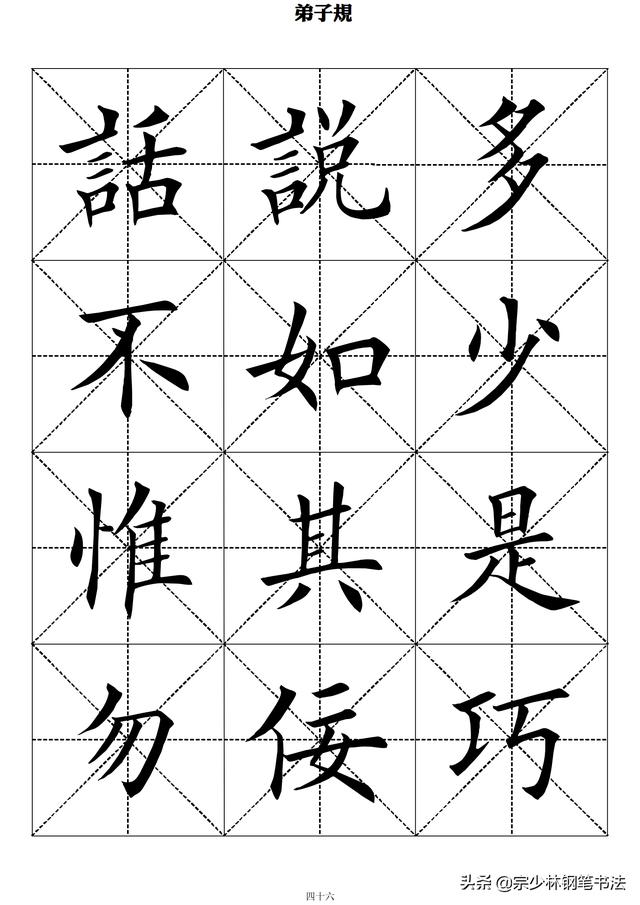 弟子規
話說多
不如少
惟其是
勿佞巧
四十六
头条 @宗少林钢笔书法